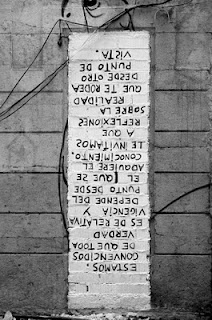 ESTAMOS.
CONVENCIDOS
DE QUE TODA
VERDAD
ES DE RELATIVA
VIGENCIA Y
DEPENDE DEL
PUNTO DESDE
EL QUE SE
ADQUIERE EL
CONOCIMIENTO.
LE INVITAMOS
A QUE
REFLEXIONES
SOBRE LA
REALIDAD
QUE TE RODEA
DESDE OTRO
PUNTO DE
VISTA.